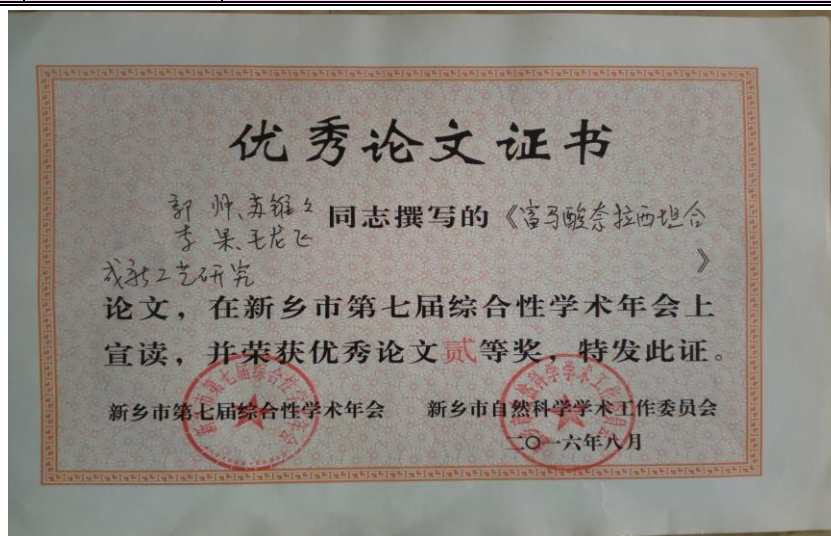 优秀论文证书
郭 帅、苏锥
李 果、毛龙飞
同志撰写的《富马酸奈拉西坦合
成新工艺研究》
论文，在新乡市第七届综合性学术年会上
宣读，并荣获优秀论文贰等奖，特发此证。
新乡市第七届综合性学术年会
新乡市自然科学学术工作委员会
二〇一六年八月